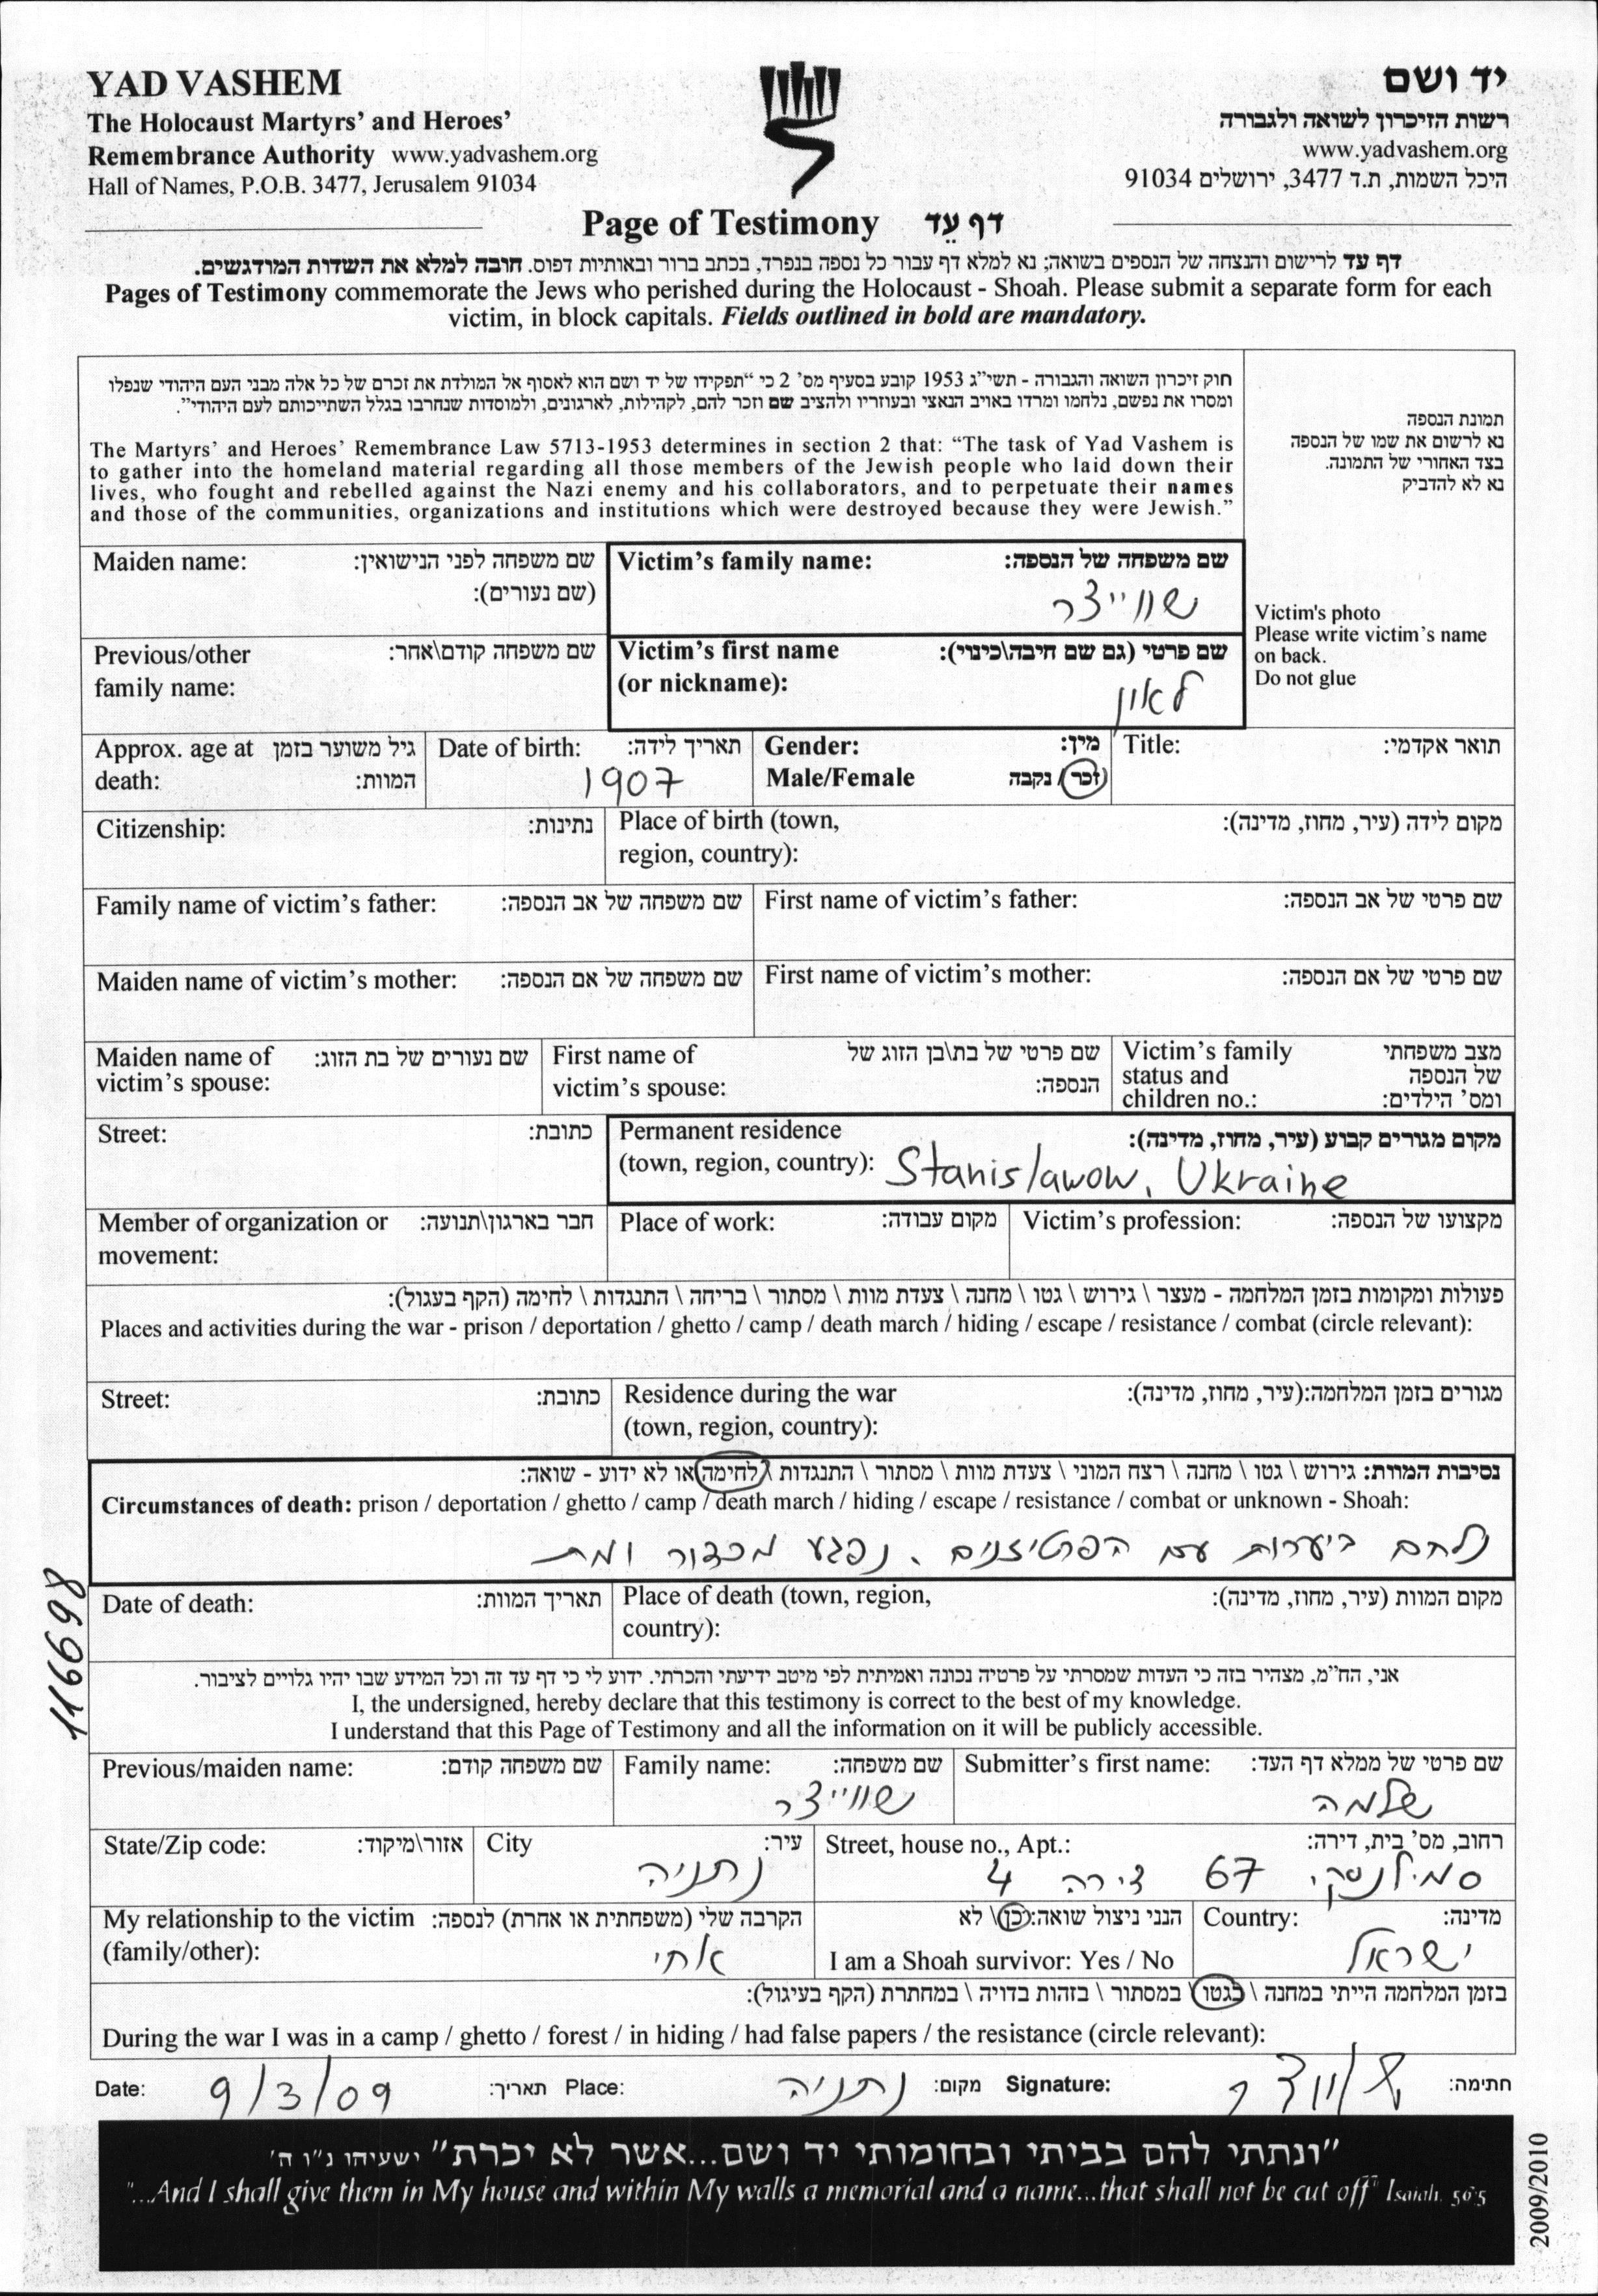 YAD VASHEM
The Holocaust Martyrs' and Heroes'
Remembrance Authority www.yadvashem.org
Hall of Names, P.O.B. 3477, Jerusalem 91034
יד ושם
רשות הזיכרון לשואה ולגבורה
www.yadvashem.org
היכל השמות, ת.ד 3477, ירושלים 91034
Page of Testimony דף עֵד
דף עד לרישום והנצחה של הנספים בשואה; נא למלא דף עבור כל נספה בנפרד, בכתב ברור ובאותיות דפוס. חובה למלא את השדות המודגשים.
Pages of Testimony commemorate the Jews who perished during the Holocaust - Shoah. Please submit a separate form for each
victim, in block capitals. Fields outlined in bold are mandatory.
חוק זיכרון השואה והגבורה - תשי"ג 1953 קובע בסעיף מס' 2 כי "תפקידו של יד ושם הוא לאסוף אל המולדת את זכרם של כל אלה מבני העם היהודי שנפלו
ומסרו את נפשם, נלחמו ומרדו באויב הנאצי ובעוזריו ולהציב שם וזכר להם, לקהילות, לארגונים, ולמוסדות שנחרבו בגלל השתייכותם לעם היהודי".
The Martyrs' and Heroes' Remembrance Law 5713-1953 determines in section 2 that: "The task of Yad Vashem is
to gather into the homeland material regarding all those members of the Jewish people who laid down their
lives, who fought and rebelled against the Nazi enemy and his collaborators, and to perpetuate their names
and those of the communities, organizations and institutions which were destroyed because they were Jewish."
תמונת הנספה
נא לרשום את שמו של הנספה
בצד האחורי של התמונה.
נא לא להדביק
Victim's photo
Please write victim's name
on back.
Do not glue
Maiden name: שם משפחה לפני הנישואין:
(שם נעורים):
Victim's family name: שם משפחה של הנספה:
שווייצר
Previous/other שם משפחה קודם\אחר:
family name:
Victim's first name שם פרטי (גם שם חיבה\כינוי):
(or nickname):
לאון
Approx. age at גיל משוער בזמן
death: המוות:
Date of birth: תאריך לידה:
1907
Gender: מין:
Male/Female זכר / נקבה
Title: תואר אקדמי:
Citizenship: נתינות:
Place of birth (town, מקום לידה (עיר, מחוז, מדינה):
region, country):
Family name of victim's father: שם משפחה של אב הנספה:
First name of victim's father: שם פרטי של אב הנספה:
Maiden name of victim's mother: שם משפחה של אם הנספה:
First name of victim's mother: שם פרטי של אם הנספה:
Maiden name of שם נעורים של בת הזוג:
victim's spouse:
First name of שם פרטי של בת\בן הזוג של
victim's spouse: הנספה:
Victim's family מצב משפחתי
status and של הנספה
children no.: ומס' הילדים:
Street: כתובת:
Permanent residence מקום מגורים קבוע (עיר, מחוז, מדינה):
(town, region, country): Stanislawow, Ukraine
Member of organization or חבר בארגון\תנועה:
movement:
Place of work: מקום עבודה:
Victim's profession: מקצועו של הנספה:
פעולות ומקומות בזמן המלחמה - מעצר \ גירוש \ גטו \ מחנה \ צעדת מוות \ מסתור \ בריחה \ התנגדות \ לחימה (הקף בעגול):
Places and activities during the war - prison / deportation / ghetto / camp / death march / hiding / escape / resistance / combat (circle relevant):
Street: כתובת:
Residence during the war מגורים בזמן המלחמה:(עיר, מחוז, מדינה):
(town, region, country):
נסיבות המוות: גירוש \ גטו \ מחנה \ רצח המוני \ צעדת מוות \ מסתור \ התנגדות \ לחימה או לא ידוע - שואה:
Circumstances of death: prison / deportation / ghetto / camp / death march / hiding / escape / resistance / combat or unknown - Shoah:
נלחם ביערות עם הפרטיזנים. נפגע מכדור ומת
Date of death: תאריך המוות:
Place of death (town, region, מקום המוות (עיר, מחוז, מדינה):
country):
116698
אני, הח"מ, מצהיר בזה כי העדות שמסרתי על פרטיה נכונה ואמיתית לפי מיטב ידיעתי והכרתי. ידוע לי כי דף עד זה וכל המידע שבו יהיו גלויים לציבור.
I, the undersigned, hereby declare that this testimony is correct to the best of my knowledge.
I understand that this Page of Testimony and all the information on it will be publicly accessible.
Previous/maiden name: שם משפחה קודם:
Family name: שם משפחה:
שווייצר
Submitter's first name: שם פרטי של ממלא דף העד:
שלמה
State/Zip code: אזור\מיקוד:
City עיר:
נתניה
Street, house no., Apt.: רחוב, מס' בית, דירה:
סמילנסקי 67 דירה 4
My relationship to the victim הקרבה שלי (משפחתית או אחרת) לנספה:
(family/other): אחי
הנני ניצול שואה: כן \ לא
I am a Shoah survivor: Yes / No
Country: מדינה:
ישראל
בזמן המלחמה הייתי במחנה \ בגטו \ במסתור \ בזהות בדויה \ במחתרת (הקף בעיגול):
During the war I was in a camp / ghetto / forest / in hiding / had false papers / the resistance (circle relevant):
Date: 9/3/09 תאריך: Place: נתניה מקום: Signature: חתימה:
"ונתתי להם בביתי ובחומותי יד ושם...אשר לא יכרת" ישעיהו נ"ו ה'
"...And I shall give them in My house and within My walls a memorial and a name...that shall not be cut off" Isaiah. 56:5
2009/2010